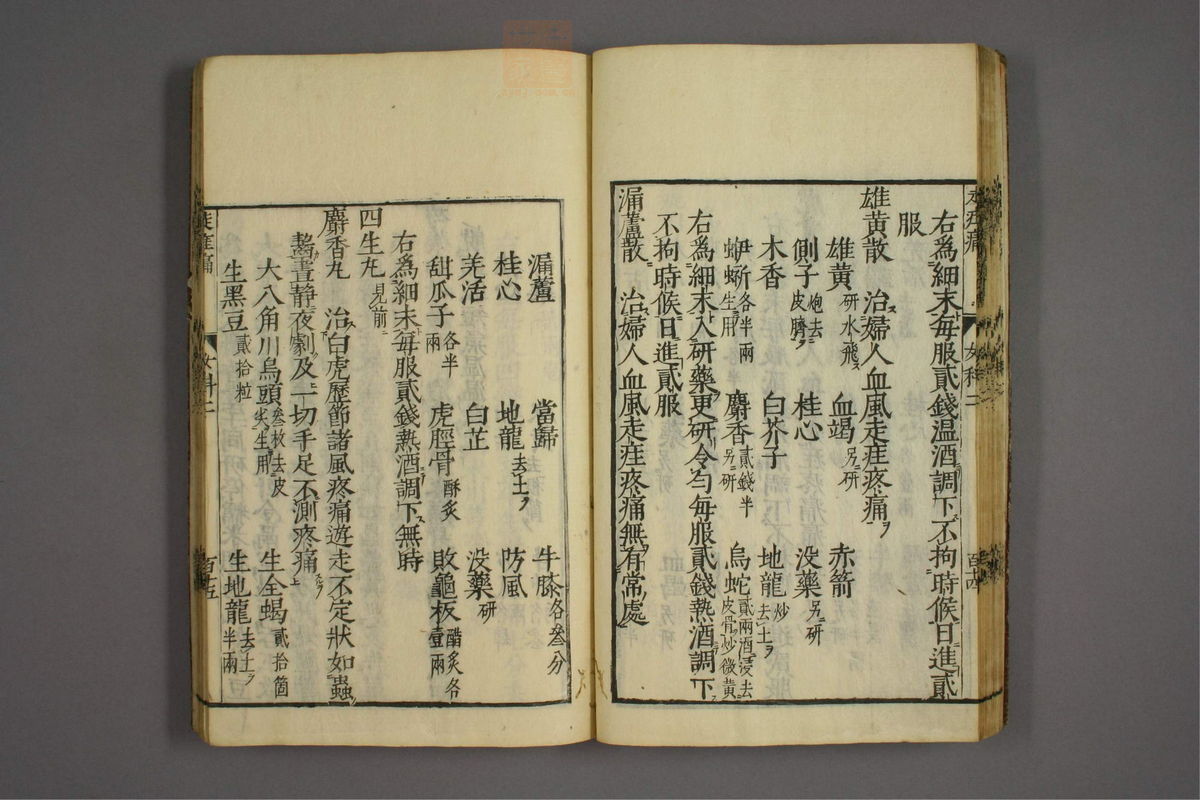 右爲細末每服貳錢温酒調下不拘時候日進貳
服
雄黄散 治婦人血風走疰疼痛ヲ
雄黄研水飛ス 血竭另ニ研 赤箭
側子炮去皮臍ヲ 桂心 没藥另ニ研
木香 白芥子 地龍炒去土ヲ
蚵蚾各半兩生ニ用 麝香貳錢半另ニ研 烏蛇貳兩酒ニ浸去皮骨ヲ炒微黄
右爲細末ト入研藥更研令勻每服貳錢熱酒調下ス
不拘時候日進貳服
漏蘆散 治婦人血風走疰疼痛無有常處
女科二
百十四
漏蘆 當歸 牛膝各叄分
桂心 地龍去土ヲ 防風
羌活 白芷 没藥研
甜瓜子各半兩 虎脛骨酥炙 敗龜板醋炙各壹兩
右爲細末ト每服貳錢熱酒調下ス無時
四生丸見前ニ
麝香丸 治白虎歷節諸風疼痛遊走不定狀如蟲
齧晝靜夜劇及一切手足不測疼痛ヲ
大八角川烏頭叄枚去皮尖ヲ生ニ用 生全蝎貳拾箇
生黑豆貳拾粒 生地龍去土ヲ半兩
女科二
百十五